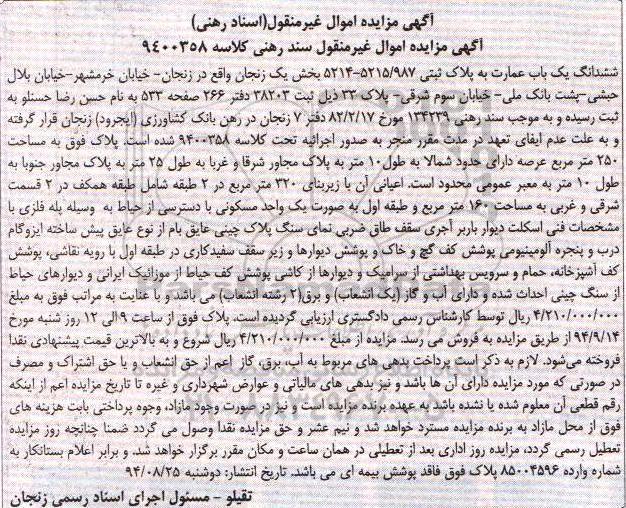 آگهی مزایده اموال غیرمنقول(اسناد رهنی)
آگهی مزایده اموال غیرمنقول سند رهنی کلاسه ۹۴۰۰۳۵۸
ششدانگ یک باب عمارت به پلاک ثبتی ۵۲۱۵/۹۸۷-۵۲۱۴ بخش یک زنجان واقع در زنجان- خیابان خرمشهر-خیابان بلال
حبشی-پشت بانک ملی- خیابان سوم شرقی- پلاک ۳۳ ذیل ثبت ۳۸۲۰۳ دفتر ۲۶۶ صفحه ۵۳۳ به نام حسن رضا حسنلو به
ثبت رسیده و به موجب سند رهنی ۱۳۴۲۳۹ مورخ ۸۲/۲/۱۷ دفتر ۷ زنجان در رهن بانک کشاورزی (ایجرود) زنجان قرار گرفته
و به علت عدم ایفای تعهد در مدت مقرر منجر به صدور اجرائیه تحت کلاسه ۹۴۰۰۳۵۸ شده است. پلاک فوق به مساحت
۲۵۰ متر مربع عرصه دارای حدود شمالا به طول۱۰ متر به پلاک مجاور شرقا و غربا به طول ۲۵ متر به پلاک مجاور جنوبا به
طول ۱۰ متر به معبر عمومی محدود است. اعیانی آن با زیربنای ۳۲۰ متر مربع در ۲ طبقه شامل طبقه همکف در ۲ قسمت
شرقی و غربی به مساحت ۱۶۰ متر مربع و طبقه اول به صورت یک واحد مسکونی با دسترسی از حیاط به وسیله پله فلزی با
مشخصات فنی اسکلت دیوار باربر آجری سقف طاق ضربی نمای سنگ پلاک چینی عایق بام از نوع عایق پیش ساخته ایزوگام
درب و پنجره آلومینیومی پوشش کف گچ و خاک و پوشش دیوارها و زیر سقف سفیدکاری در طبقه اول با رویه نقاشی، پوشش
کف آشپزخانه، حمام و سرویس بهداشتی از سرامیک و دیوارها از کاشی پوشش کف حیاط از موزائیک ایرانی و دیوارهای حیاط
از سنگ چینی احداث شده و دارای آب و گاز (یک انشعاب) و برق(۲ رشته انشعاب) می باشد و با عنایت به مراتب فوق به مبلغ
۴/۲۱۰/۰۰۰/۰۰۰ ریال توسط کارشناس رسمی دادگستری ارزیابی گردیده است. پلاک فوق از ساعت ۹ الی ۱۲ روز شنبه مورخ
۹۴/۹/۱۴ از طریق مزایده به فروش می رسد. مزایده از مبلغ ۴/۲۱۰/۰۰۰/۰۰۰ ریال شروع و به بالاترین قیمت پیشنهادی نقدا
فروخته می‌شود. لازم به ذکر است پرداخت بدهی های مربوط به آب، برق، گاز اعم از حق انشعاب و یا حق اشتراک و مصرف
در صورتی که مورد مزایده دارای آن ها باشد و نیز بدهی های مالیاتی و عوارض شهرداری و غیره تا تاریخ مزایده اعم از اینکه
رقم قطعی آن معلوم شده یا نشده باشد به عهده برنده مزایده است و نیز در صورت وجود مازاد، وجوه پرداختی بابت هزینه های
فوق از محل مازاد به برنده مزایده مسترد خواهد شد و نیم عشر و حق مزایده نقدا وصول می گردد ضمنا چنانچه روز مزایده
تعطیل رسمی گردد، مزایده روز اداری بعد از تعطیلی در همان ساعت و مکان مقرر برگزار خواهد شد. و برابر اعلام بستانکار به
شماره وارده ۸۵۰۰۴۵۹۶ پلاک فوق فاقد پوشش بیمه ای می باشد. تاریخ انتشار: دوشنبه ۹۴/۰۸/۲۵
تقیلو - مسئول اجرای اسناد رسمی زنجان